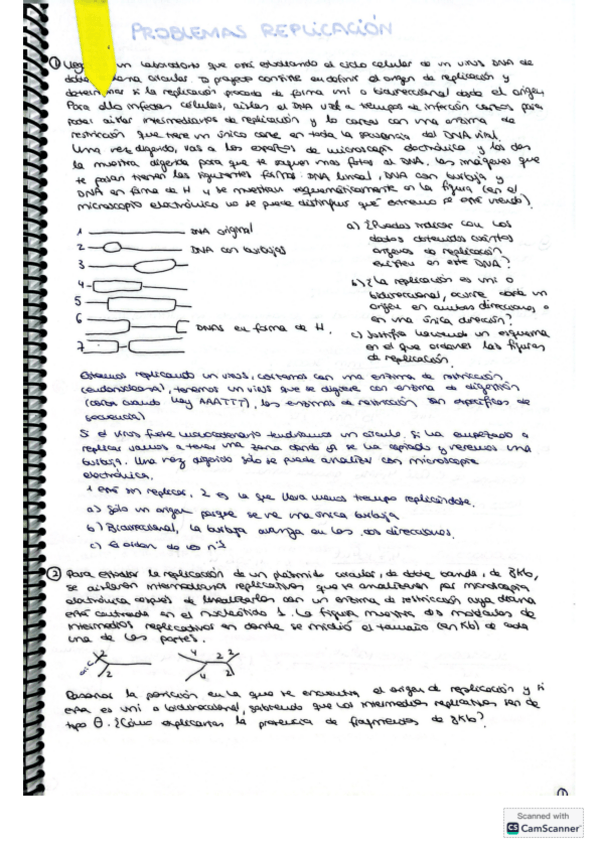 PROBLEMAS REPLICACIÓN
① un laboratorio que está estudiando el ciclo celular de un virus DNA de
circular. proyecto consiste en definir el origen de replicación y
si la replicación procede de forma uni o bidireccional desde el origen.
Para ello infectan células, aislan el DNA viral a tiempos de infección cortos para
poder aislar intermediarios de replicación y lo cortas con una enzima de
restricción que tiene un único corte en toda la secuencia del DNA viral.
Una vez digerido, vas a los expertos de microscopía electrónica y les das
la muestra digerida para que te saquen unas fotos al DNA. Las imágenes que
te pasan tienen las siguientes formas: DNA lineal, DNA con burbuja y
DNA en forma de H y se muestran esquemáticamente en la figura (en el
microscopio electrónico no se puede distinguir qué extremo se está viendo).
1 DNA original
2 DNA con burbujas
3
4
5
6 DNAs en forma de H.
7
a) ¿Puedes indicar con los
datos obtenidos cuántos
orígenes de replicación
existen en este DNA?
b) ¿La replicación es uni o
bidireccional, ocurre desde un
origen en ambas direcciones, o
en una única dirección?
c) Justifica haciendo un esquema
en el que ordenes las figuras
de replicación.
Estamos replicando un virus, cortamos con una enzima de restricción
(endonucleasa), tenemos un virus que se digiere con enzima de digestión
(corta cuando hay AAATTT), las enzimas de restricción son específicas de
secuencia)
Si el virus fuere tendríamos un círculo. Si ha empezado a
replicar vamos a tener una zona donde ya se ha copiado y veremos una
burbuja. Una vez digerido sólo se puede analizar con microscopía
electrónica.
1 está sin replicar, 2 es la que lleva menos tiempo replicándose.
a) Sólo un origen porque se ve una única burbuja
b) Bidireccional, la burbuja avanza en las dos direcciones.
c) el orden de los nºs
② Para estudiar la replicación de un plásmido circular, de doble banda, de 8Kb,
se aislaron intermediarios replicativos que se analizaron por microscopía
electrónica después de linealizarlos con un enzima de restricción cuya diana
está centrada en el nucleótido 1. La figura muestra dos moléculas de
intermedios replicativos en donde se midió el tamaño (en Kb) de cada
una de las partes.
2
2
4 2 2
4 2
Razonar la posición en la que se encuentra el origen de replicación y si
esta es uni o bidireccional, sabiendo que los intermedios replicativos son de
tipo θ. ¿Cómo explicarías la presencia de fragmentos de 8Kb?
①
Scanned with
CS CamScanner